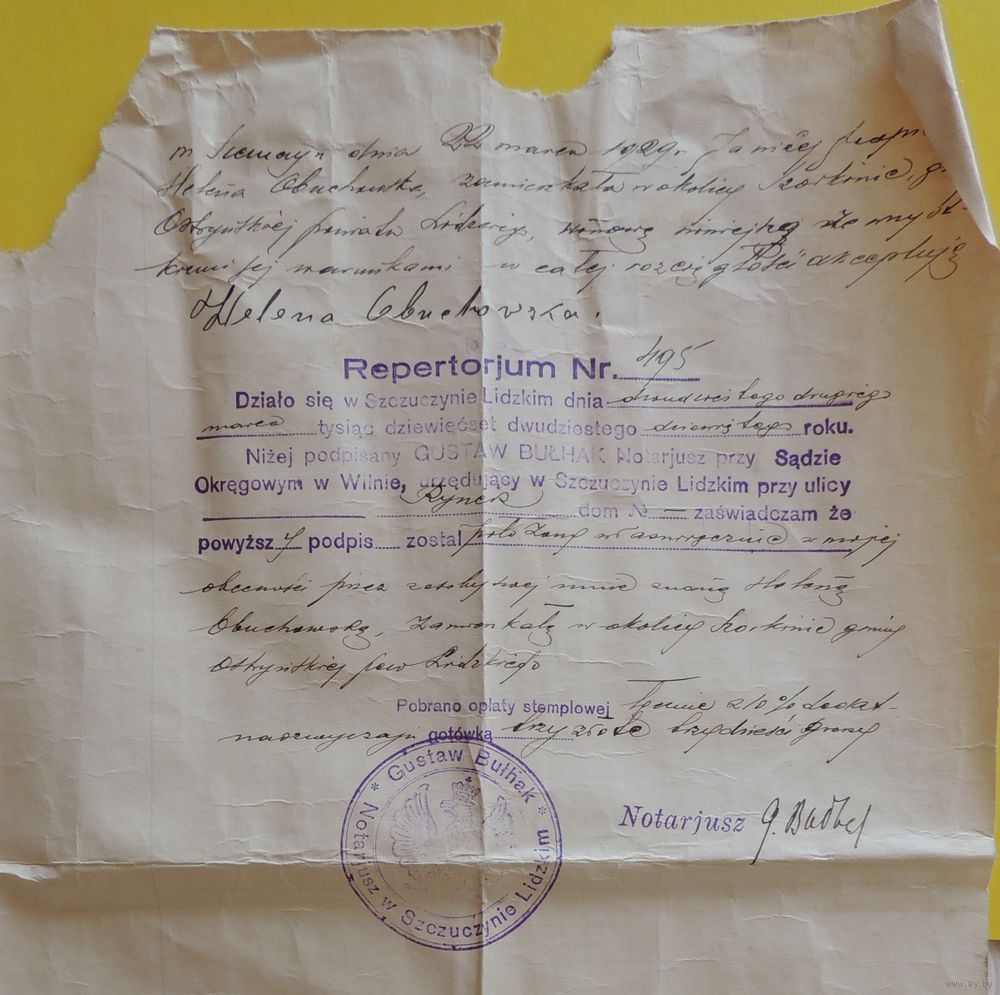 dnia 22 marca 1929 r. Ja niżej
Helena Obuchowska, zamieszkała w okolicy Szorkinie, g.
Ostryńskiej powiatu Lidzkiego, umowę niniejszą ze wszyst-
kemi jej warunkami w całej rozciągłości akceptuję
Helena Obuchowska.
Repertorjum Nr. 495
Działo się w Szczuczynie Lidzkim dnia dwudziestego drugiego
marca tysiąc dziewięćset dwudziestego dziewiątego roku.
Niżej podpisany GUSTAW BUŁHAK Notarjusz przy Sądzie
Okręgowym w Wilnie, urzędujący w Szczuczynie Lidzkim przy ulicy
Rynek dom № — zaświadczam że
powyższy podpis został położony własnoręcznie w mojej
obecności przez osobiście mnie znaną Helenę
Obuchowską, zamieszkałą w okolicy Szorkinie gminy
Ostryńskiej pow Lidzkiego
Pobrano opłaty stemplowej łącznie z 10% dodat-
gotówką trzy złote trzydzieści groszy
Notarjusz G. Bułhak
* Gustaw Bułhak *
Notarjusz w Szczuczynie Lidzkim
www.ay.by